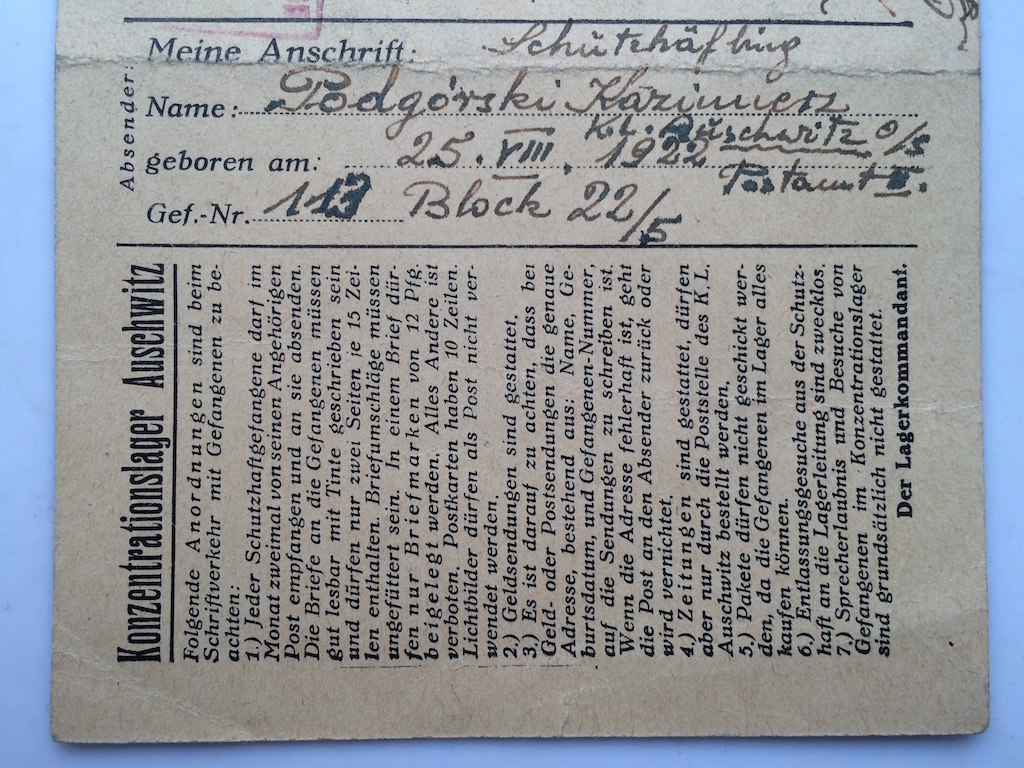 Meine Anschrift: Schützhäftling
Absender:
Name: Podgórski Kazimierz
K.L. Auschwitz O/S
geboren am: 25. VIII. 1922
Postamt II.
Gef.-Nr. 113 Block 22/5
Konzentrationslager Auschwitz
Folgende Anordnungen sind beim
Schriftverkehr mit Gefangenen zu be-
achten:
1.) Jeder Schutzhaftgefangene darf im
Monat zweimal von seinen Angehörigen
Post empfangen und an sie absenden.
Die Briefe an die Gefangenen müssen
gut lesbar mit Tinte geschrieben sein
und dürfen nur zwei Seiten je 15 Zei-
len enthalten. Briefumschläge müssen
ungefüttert sein. In einem Brief dür-
fen nur Briefmarken von 12 Pfg.
beigelegt werden. Alles Andere ist
verboten. Postkarten haben 10 Zeilen.
Lichtbilder dürfen als Post nicht ver-
wendet werden.
2.) Geldsendungen sind gestattet.
3.) Es ist darauf zu achten, dass bei
Geld- oder Postsendungen die genaue
Adresse, bestehend aus: Name, Ge-
burtsdatum, und Gefangenen-Nummer,
auf die Sendungen zu schreiben ist.
Wenn die Adresse fehlerhaft ist, geht
die Post an den Absender zurück oder
wird vernichtet.
4.) Zeitungen sind gestattet, dürfen
aber nur durch die Poststelle des K. L.
Auschwitz bestellt werden.
5.) Pakete dürfen nicht geschickt wer-
den, da die Gefangenen im Lager alles
kaufen können.
6.) Entlassungsgesuche aus der Schutz-
haft an die Lagerleitung sind zwecklos.
7.) Sprecherlaubnis und Besuche von
Gefangenen im Konzentrationslager
sind grundsätzlich nicht gestattet.
Der Lagerkommandant.